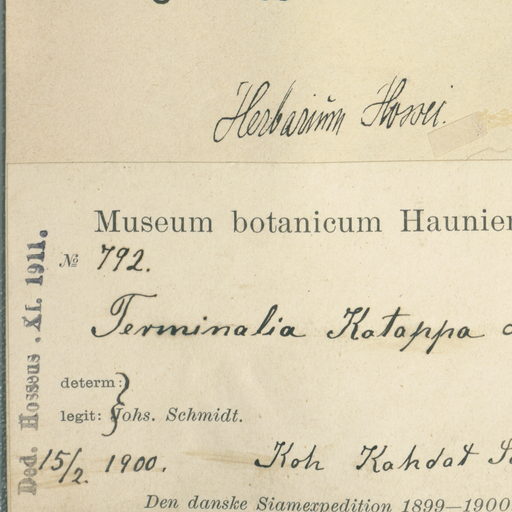 Herbarium Hossei.
Museum botanicum Haunien
№ 792.
Terminalia Katappa
determ:
legit: Johs. Schmidt.
15/2. 1900. Koh Kahdat
Den danske Siamexpedition 1899—1900
Ded. Hosseus. XI. 1911.